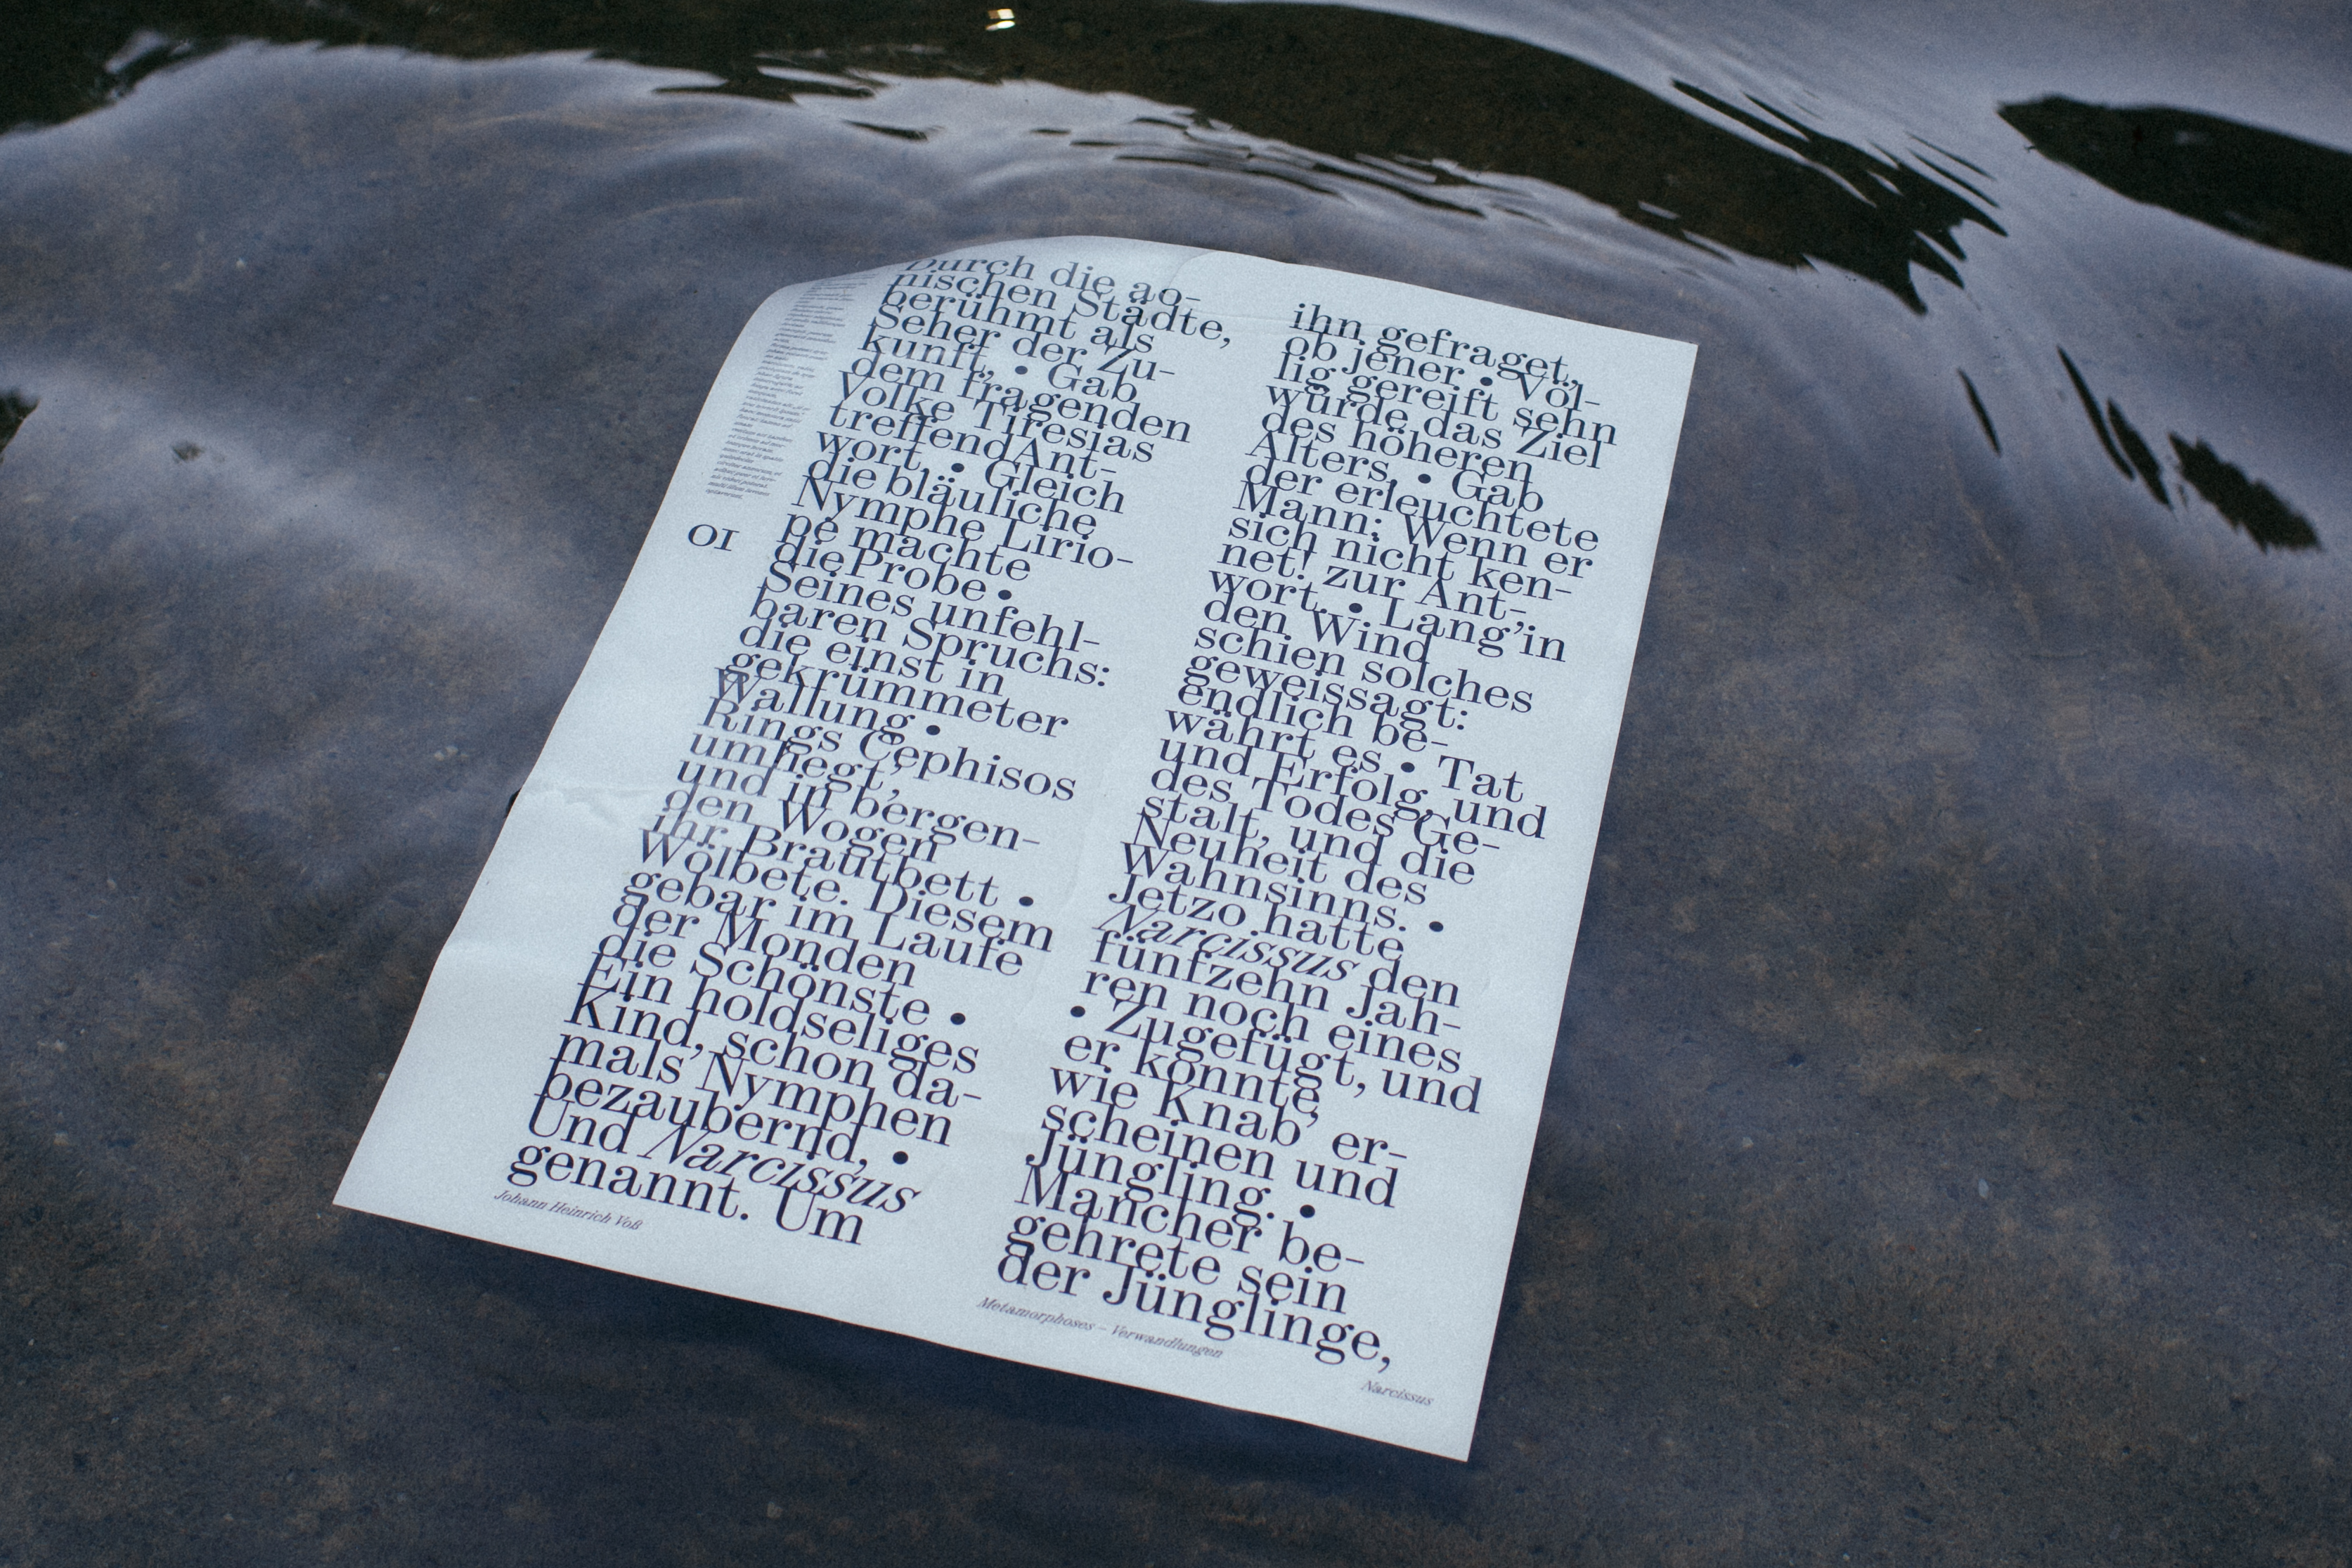 Durch die ao-
nischen Städte,
berühmt als
Seher der Zu-
kunft, • Gab
dem fragenden
Volke Tiresias
treffend Ant-
wort. • Gleich
die bläuliche
Nymphe Lirio-
pe machte
die Probe •
Seines unfehl-
baren Spruchs:
die einst in
gekrümmeter
Wallung •
Rings Cephisos
umfiegt,
und in bergen-
den Wogen
ihr Brautbett •
Wölbete. Diesem
gebar im Laufe
der Monden
die Schönste •
Ein holdseliges
Kind, schon da-
mals Nymphen
bezaubernd, •
Und Narcissus
genannt. Um
01
Johann Heinrich Voß
ihn gefraget,
ob jener • Völ-
lig gereift sehn
würde das Ziel
des höheren
Alters, • Gab
der erleuchtete
Mann: Wenn er
sich nicht ken-
net! zur Ant-
wort. • Lang'in
den Wind
schien solches
geweissagt:
endlich be-
währt es • Tat
und Erfolg, und
des Todes Ge-
stalt, und die
Neuheit des
Wahnsinns. •
Jetzo hatte
Narcissus den
fünfzehn Jah-
ren noch eines
• Zugefügt, und
er konnte,
wie Knab' er-
scheinen und
Jüngling. •
Mancher be-
gehrete sein
der Jünglinge,
Metamorphoses – Verwandlungen
Narcissus